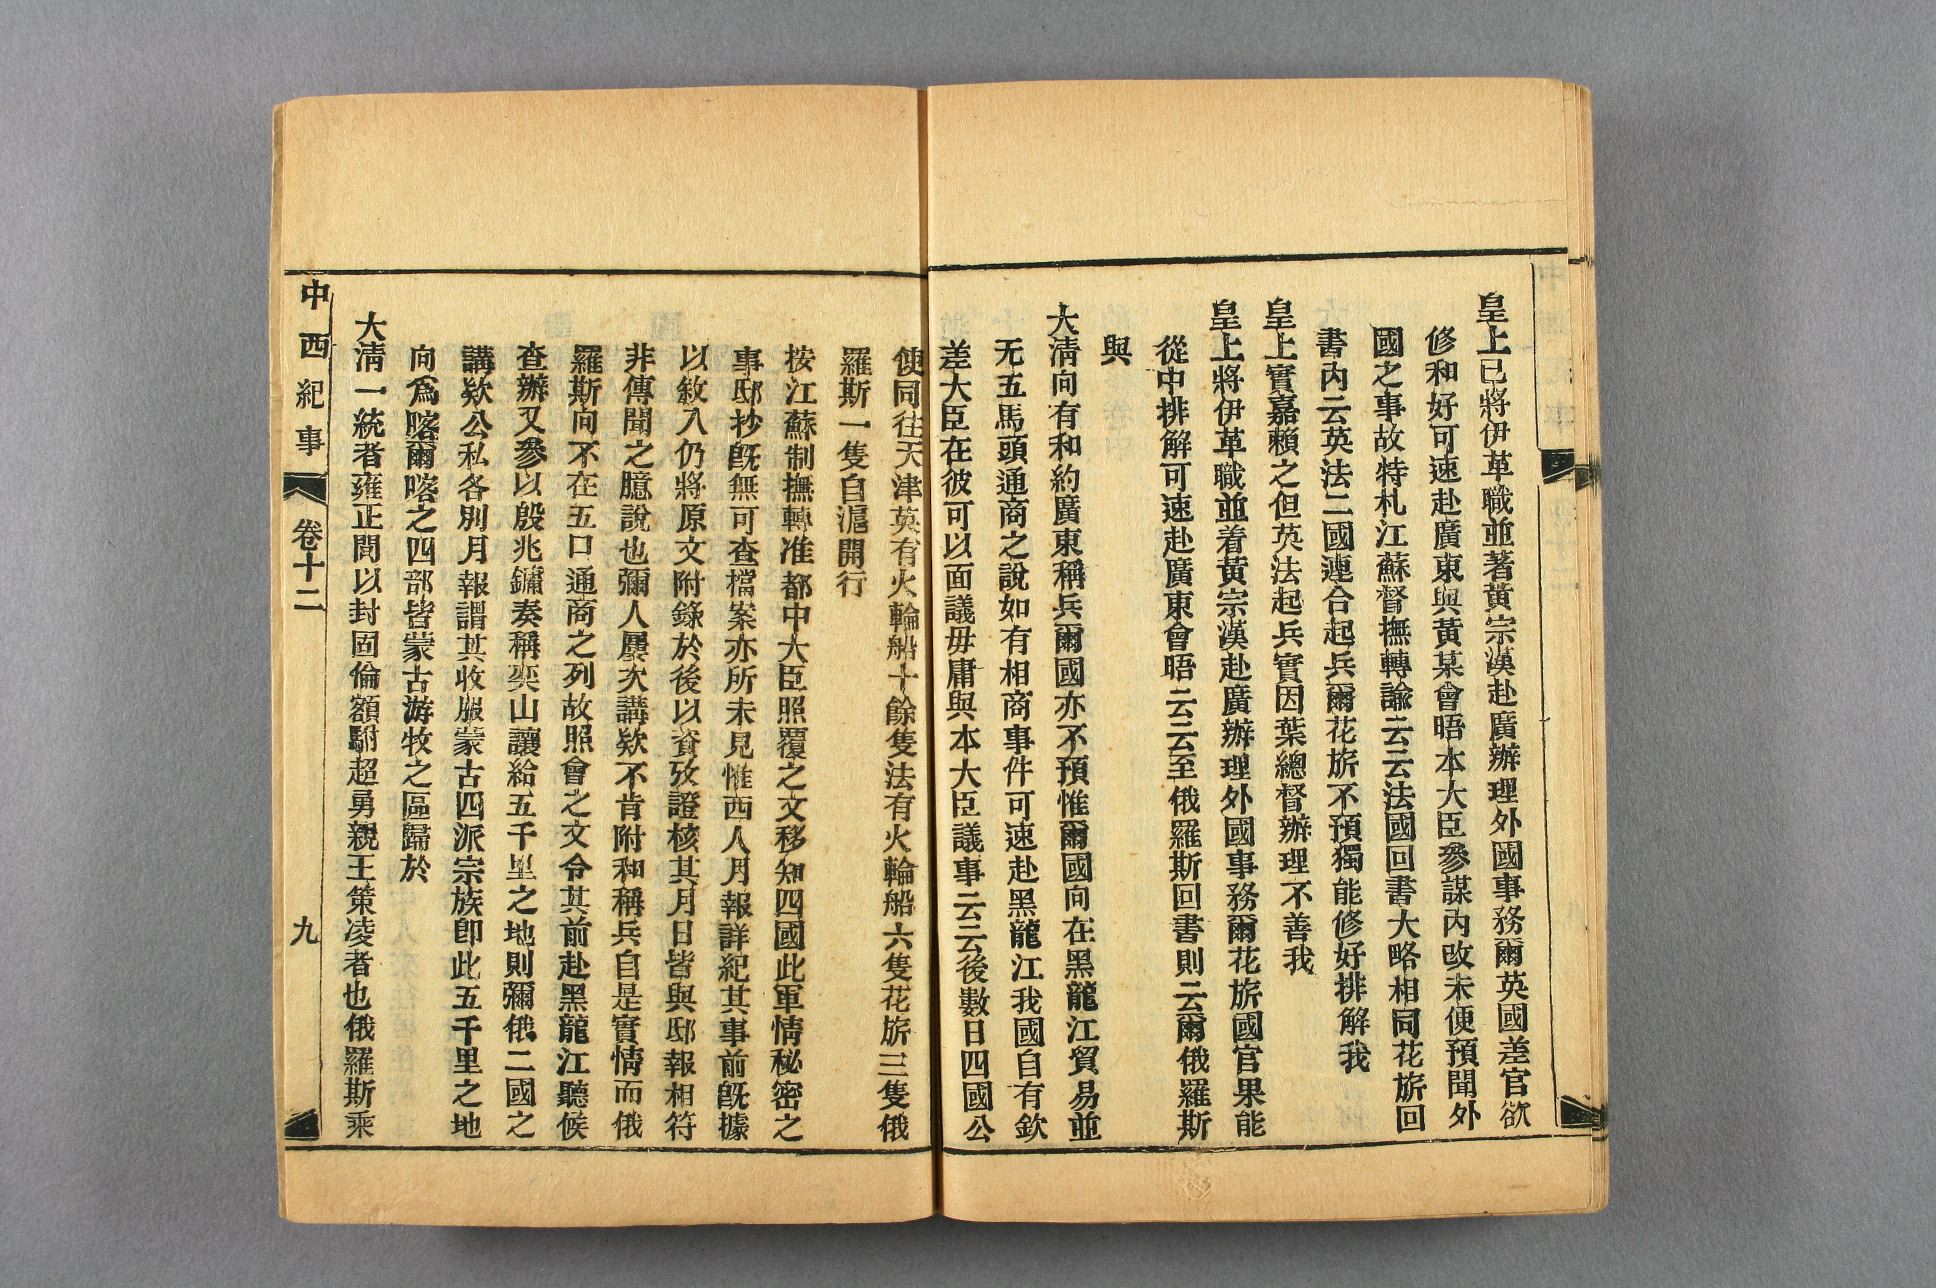 皇上已將伊革職並著黃宗漢赴廣辦理外國事務爾英國差官欲
修和好可速赴廣東與黃某會晤本大臣參謀內政未便預聞外
國之事故特札江蘇督撫轉諭云云法國回書大略相同花旂回
書內云英法二國連合起兵爾花旂不預獨能修好排解我
皇上實嘉賴之但英法起兵實因葉總督辦理不善我
皇上將伊革職並着黃宗漢赴廣辦理外國事務爾花旂國官果能
從中排解可速赴廣東會晤云云至俄羅斯回書則云爾俄羅斯
與
大清向有和約廣東稱兵爾國亦不預惟爾國向在黑龍江貿易並
无五馬頭通商之說如有相商事件可速赴黑龍江我國自有欽
差大臣在彼可以面議毋庸與本大臣議事云云後數日四國公
使同往天津英有火輪船十餘隻法有火輪船六隻花旂三隻俄
羅斯一隻自滬開行
按江蘇制撫轉准都中大臣照覆之文移知四國此軍情秘密之
事邸抄旣無可查檔案亦所未見惟西人月報詳紀其事前旣據
以敘入仍將原文附錄於後以資攷證核其月日皆與邸報相符
非傳聞之臆說也彌人屢次講欵不肯附和稱兵自是實情而俄
羅斯向不在五口通商之列故照會之文令其前赴黑龍江聽候
查辦又參以殷兆鏞奏稱奕山讓給五千里之地則彌俄二國之
講欵公私各別月報謂其收服蒙古四派宗族卽此五千里之地
向爲喀爾喀之四部皆蒙古游牧之區歸於
大清一統者雍正間以封固倫額駙超勇親王策凌者也俄羅斯乘
中西紀事
卷十二
九